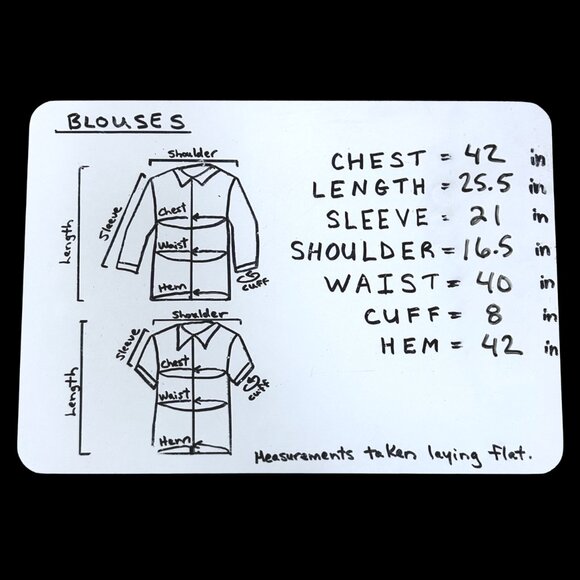 BLOUSES
Shoulder
Length
Sleeve
Chest
Waist
Hem
cuff
Shoulder
Length
Sleeve
Chest
Waist
Hem
cuff
CHEST = 42 in
LENGTH = 25.5 in
SLEEVE = 21 in
SHOULDER = 16.5 in
WAIST = 40 in
CUFF = 8 in
HEM = 42 in
Measurements taken laying flat.